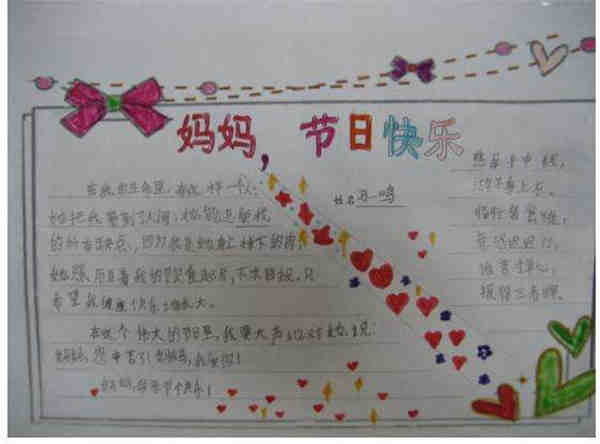 妈妈，节日快乐
在我的生命里，有这样一个人：
她把我带到了人间，她能包容我
的所有缺点，因为我是她身上掉下的肉
她照顾着我的饮食起居，不求回报，只
希望我健康快乐地长大。
在这个伟大的节日里，我要大声地对她说：
妈妈，您辛苦了！我爱您！
妈妈，祝您节日快乐！
姓名 鸣
慈母手中线，
游子身上衣。
临行密密缝，
意恐迟迟归。
谁言寸草心，
报得三春晖。